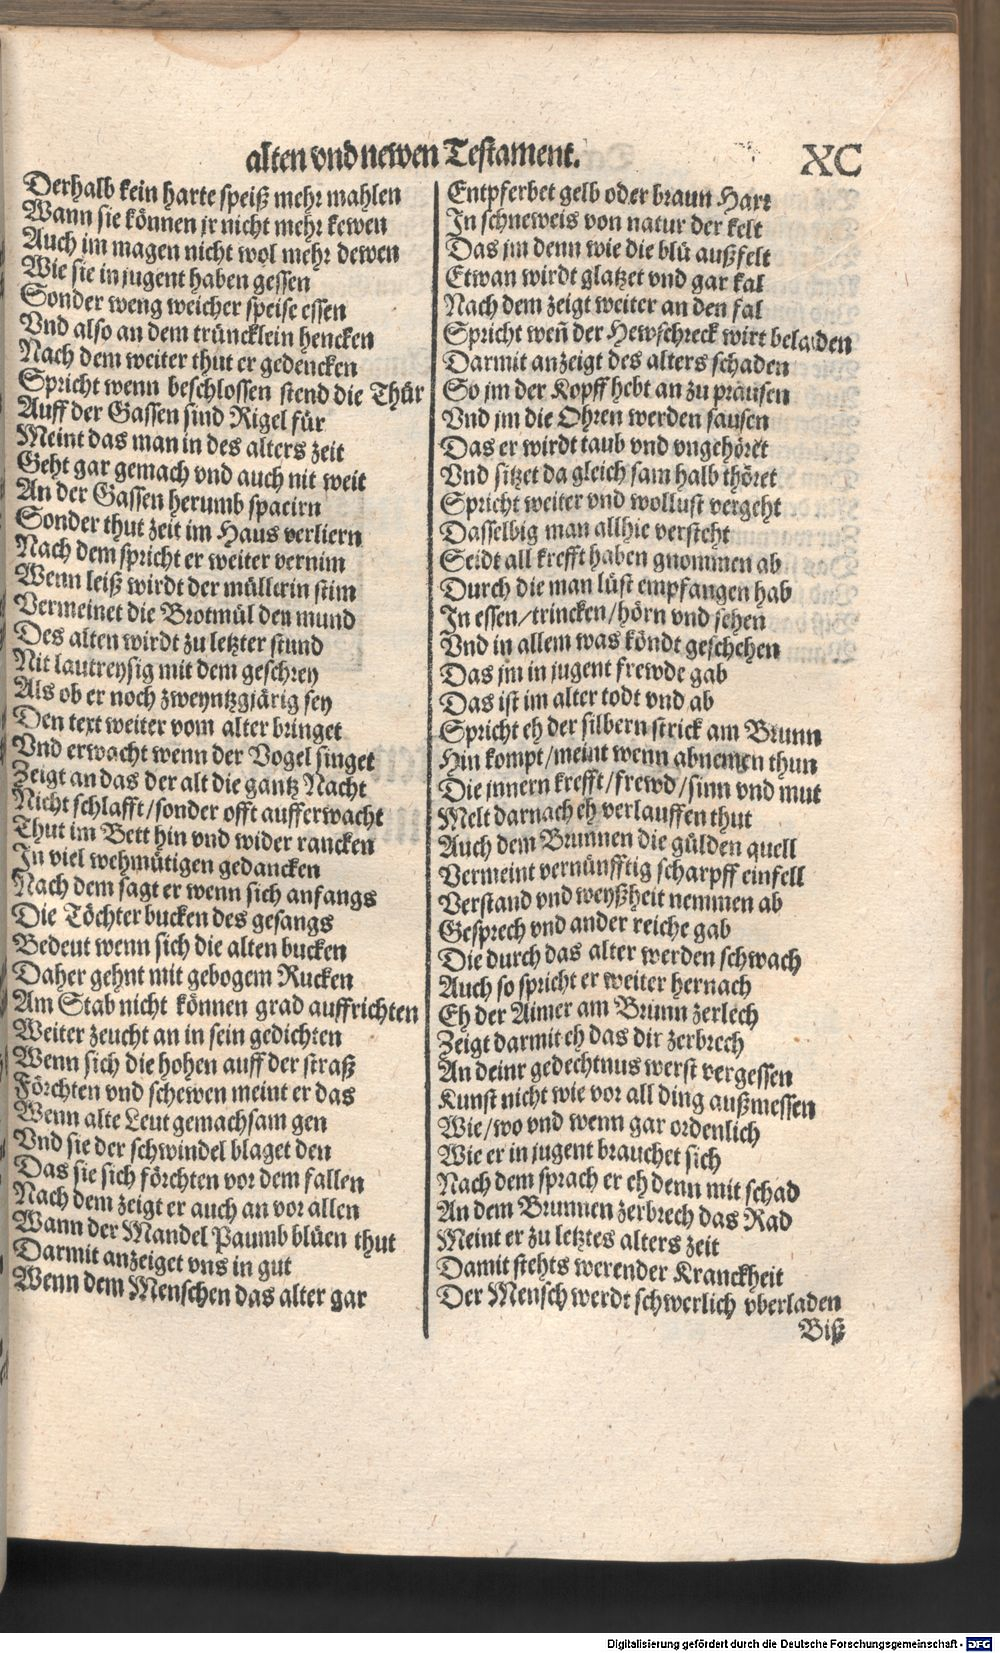 alten vnd newen Testament. XC
Derhalb kein harte speiß mehr mahlen
Wann sie können jr nicht mehr kewen
Auch im magen nicht wol mehr dewen
Wie sie in jugent haben gessen
Sonder weng weicher speise essen
Vnd also an dem trüncklein hencken
Nach dem weiter thut er gedencken
Spricht wenn beschlossen stend die Thür
Auff der Gassen sind Rigel für
Meint das man in des alters zeit
Geht gar gemach vnd auch nit weit
An der Gassen herumb spacirn
Sonder thut zeit im Haus verliern
Nach dem spricht er weiter vernim
Wenn leiß wirdt der müllerin stim
Vermeinet die Brotmül den mund
Des alten wirdt zu letzter stund
Nit lautreysig mit dem geschrey
Als ob er noch zweyntzgjärig sey
Den text weiter vom alter bringet
Vnd erwacht wenn der Vogel singet
Zeigt an das der alt die gantz Nacht
Nicht schlafft/sonder offt aufferwacht
Thut im Bett hin vnd wider rancken
In viel wehmütigen gedancken
Nach dem sagt er wenn sich anfangs
Die Töchter bucken des gesangs
Bedeut wenn sich die alten bucken
Daher gehnt mit gebogem Rucken
Am Stab nicht können grad auffrichten
Weiter zeucht an in sein gedichten
Wenn sich die hohen auff der straß
Förchten vnd schewen meint er das
Wenn alte Leut gemachsam gen
Vnd sie der schwindel blaget den
Das sie sich förchten vor dem fallen
Nach dem zeigt er auch an vor allen
Wann der Mandel Paumb blüen thut
Darmit anzeiget vns in gut
Wenn dem Menschen das alter gar
Entpferbet gelb oder braun Harr
In schneweis von natur der kelt
Das jm denn wie die blü außfelt
Etwan wirdt glatzet vnd gar kal
Nach dem zeigt weiter an den fal
Spricht weñ der Hewschreck wirt beladen
Darmit anzeigt des alters schaden
So jm der Kopff hebt an zu prausen
Vnd jm die Ohren werden sausen
Das er wirdt taub vnd vngehöret
Vnd sitzet da gleich sam halb thöret
Spricht weiter vnd wollust vergeht
Dasselbig man allhie versteht
Seidt all krefft haben gnommen ab
Durch die man lüst empfangen hab
In essen/trincken/hörn vnd sehen
Vnd in allem was köndt geschehen
Das jm in jugent frewde gab
Das ist im alter todt vnd ab
Spricht eh der silbern strick am Brunn
Hin kompt/meint wenn abnemen thun
Die jnnern krefft/frewd/sinn vnd mut
Melt darnach eh verlauffen thut
Auch dem Brunnen die gülden quell
Vermeint vernünfftig scharpff einfell
Verstand vnd weyßheit nemmen ab
Gesprech vnd ander reiche gab
Die durch das alter werden schwach
Auch so spricht er weiter hernach
Eh der Aimer am Brunn zerlech
Zeigt darmit eh das dir zerbrech
An deinr gedechtnus werst vergessen
Kunst nicht wie vor all ding außmessen
Wie/wo vnd wenn gar ordenlich
Wie er in jugent brauchet sich
Nach dem sprach er eh denn mit schad
An dem Brunnen zerbrech das Rad
Meint er zu letztes alters zeit
Damit stehts werender Kranckheit
Der Mensch werdt schwerlich vberladen
Biß
Digitalisierung gefördert durch die Deutsche Forschungsgemeinschaft - DFG